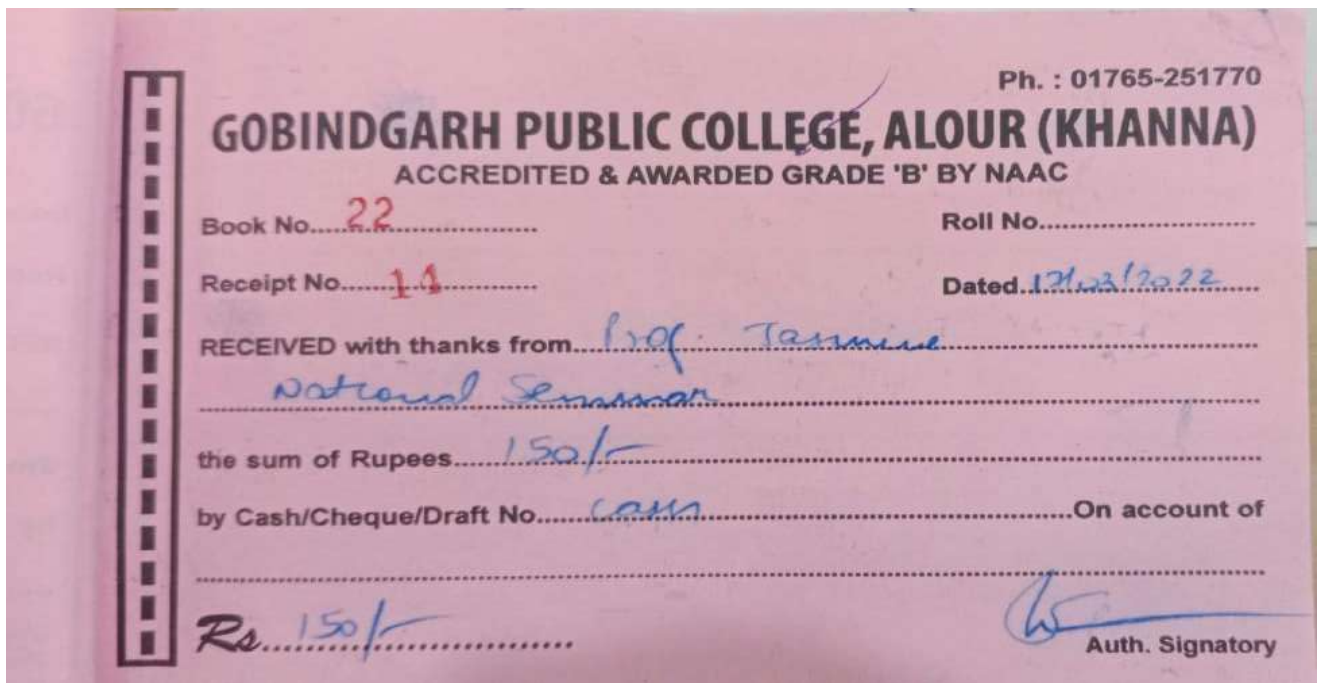 Ph. : 01765-251770
GOBINDGARH PUBLIC COLLEGE, ALOUR (KHANNA)
ACCREDITED & AWARDED GRADE 'B' BY NAAC
Book No....22.................... Roll No............................
Receipt No.......11.............. Dated..17/03/2022.....
RECEIVED with thanks from....Prof. Jasmine..........................
National Seminar..........................
the sum of Rupees......150/-..........................
by Cash/Cheque/Draft No.......Cash..........................On account of
Rs...150/-..........................
Auth. Signatory